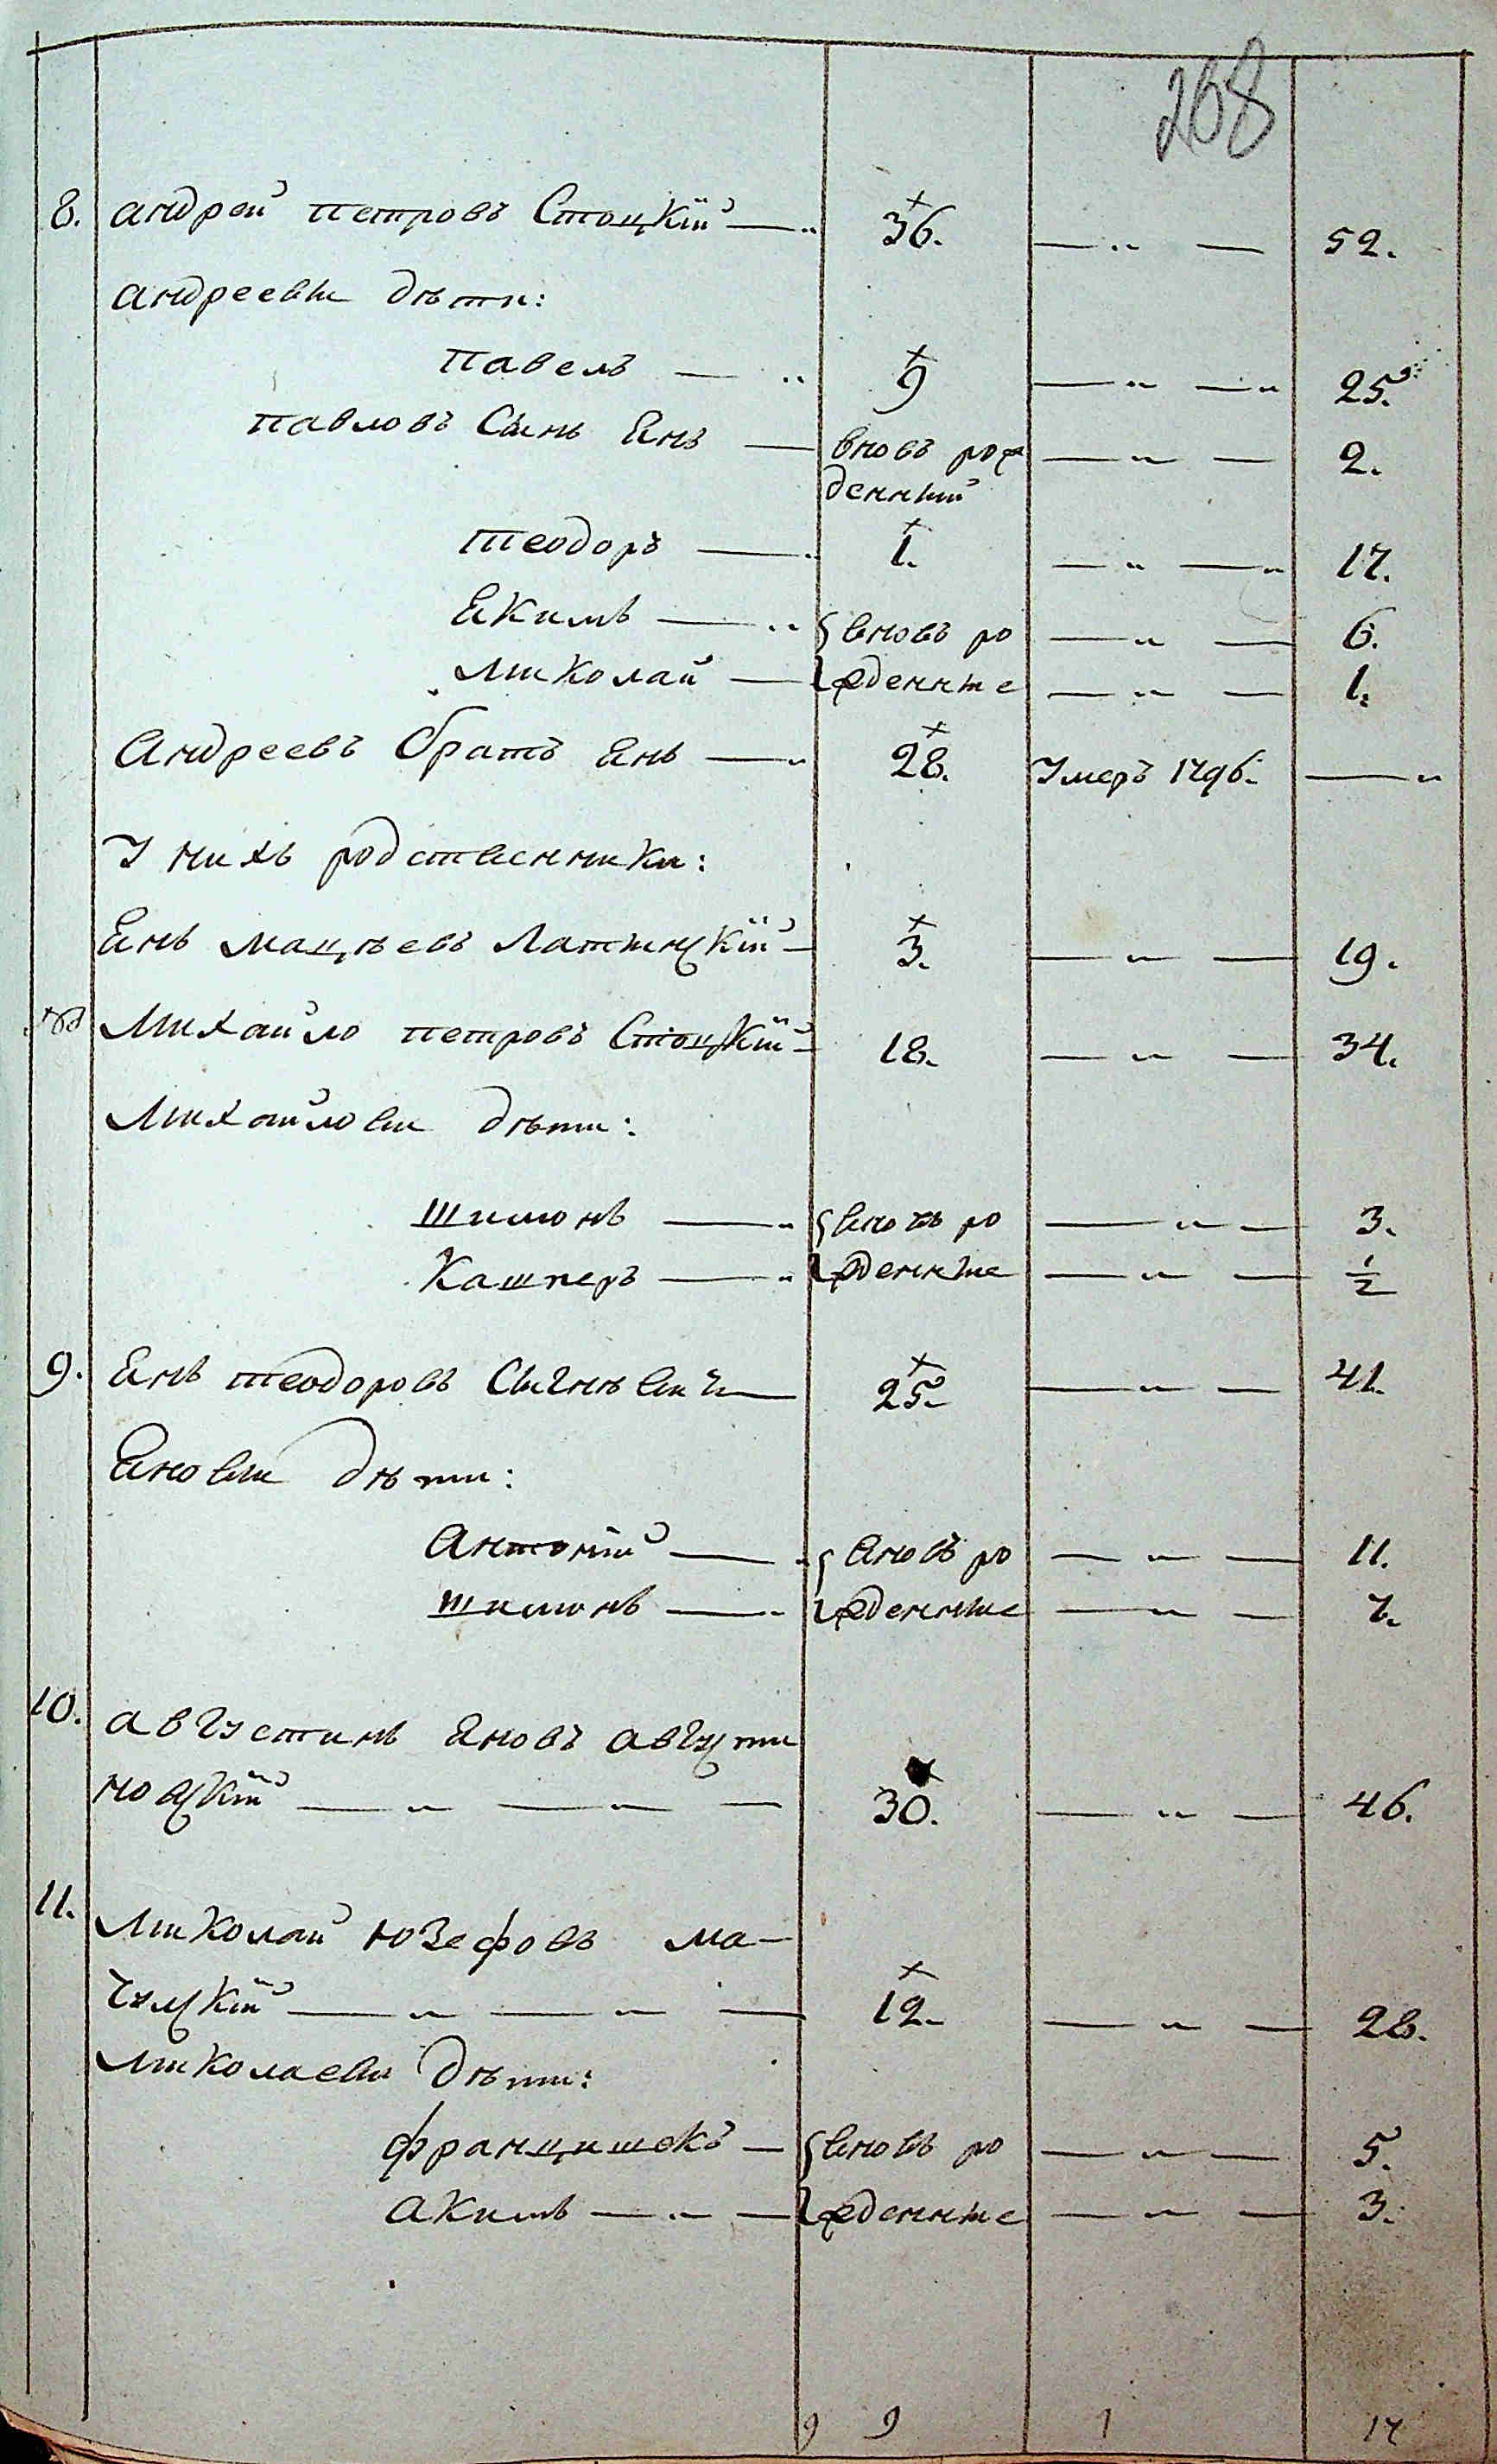 268
8. Андрей Петровъ Стоцкій — 36. — 52.
Андреевы дѣти:
Павелъ — 9 — 25.
Павловъ сынъ Янъ — вновь рож — 2.
денный
Теодоръ — 1. — 17.
Якимъ — вновь ро — 6.
Миколай — жденные — 1.
Андреевъ братъ Янъ — 28. Умеръ 1796. —
У нихъ родственники:
Янъ Мацѣевъ — 3. — 19.
Михайло Петровъ Стоцкій — 18. — 34.
Михайловы дѣти:
Шимонъ — вновь ро — 3.
Кашперъ — жденные — 1/2
9. Янъ Теодоровъ — 25. — 41.
Яновы дѣти:
Антоній — вновь ро — 11.
Шимонъ — жденные — 7.
10. Августинъ Яновъ Августи
новскій — 30. — 46.
11. Миколай Юзефовъ Ма-
— 12. — 28.
Миколаевы дѣти:
Францишекъ — вновь ро — 5.
Акимъ — жденные — 3.
9 9 1 17